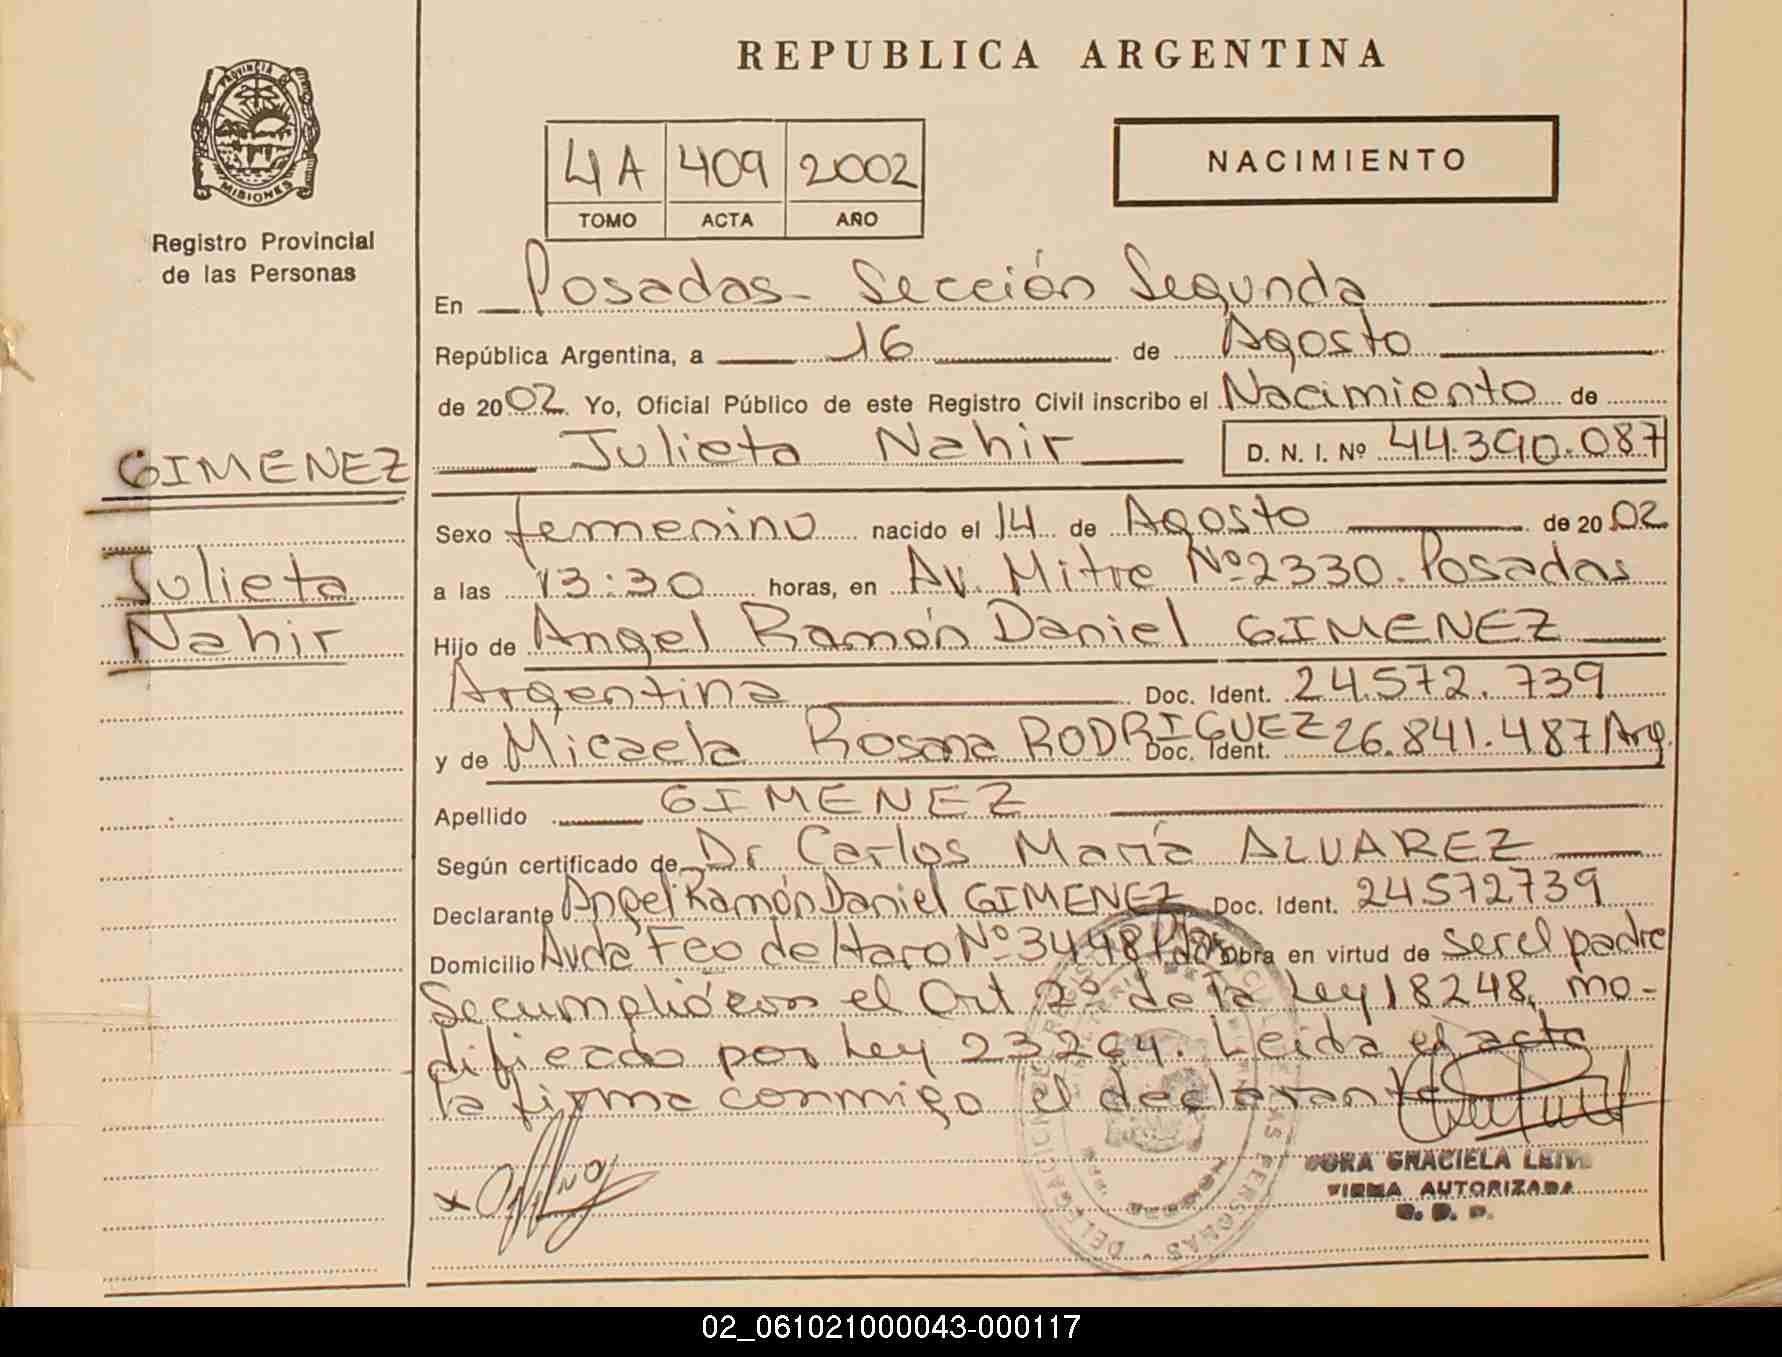 PROVINCIA DE
MISIONES
Registro Provincial
de las Personas
GIMENEZ
Julieta
Nahir
REPUBLICA ARGENTINA
4A 409 2002
TOMO ACTA AÑO
NACIMIENTO
En Posadas - Sección Segunda
República Argentina, a 16 de Agosto
de 2002. Yo, Oficial Público de este Registro Civil inscribo el Nacimiento de
Julieta Nahir D. N. I. Nº 44.390.087
Sexo femenino nacido el 14 de Agosto de 2002
a las 13:30 horas, en Av. Mitre Nº 2330. Posadas
Hijo de Angel Ramón Daniel GIMENEZ
Argentina Doc. Ident. 24.572.739
y de Micaela Rosana RODRIGUEZ Doc. Ident. 26.841.487 Arg.
Apellido GIMENEZ
Según certificado de Dr Carlos María ALVAREZ
Declarante Angel Ramón Daniel GIMENEZ Doc. Ident. 24572739
Domicilio Avda Fco de Haro Nº 3448 Pdas Obra en virtud de ser el padre
Se cumplió con el Art 2º de la Ley 18248, mo-
dificado por Ley 23264. Leída el acta
la firma conmigo el declarante
GRACIELA
FIRMA AUTORIZADA
02_061021000043-000117